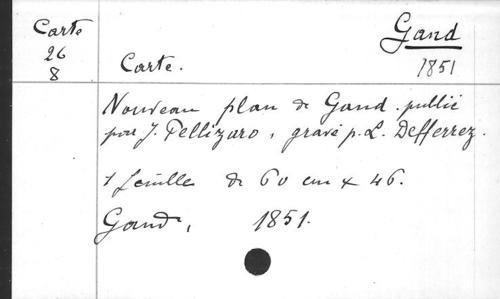 Carte
26
8
Gand
1851
Carte.
Nouveau plan de Gand publié
par J. Pellizaro, gravé p. L. Defferrez.
1 feuille de 60 cm x 46.
Gand, 1851.